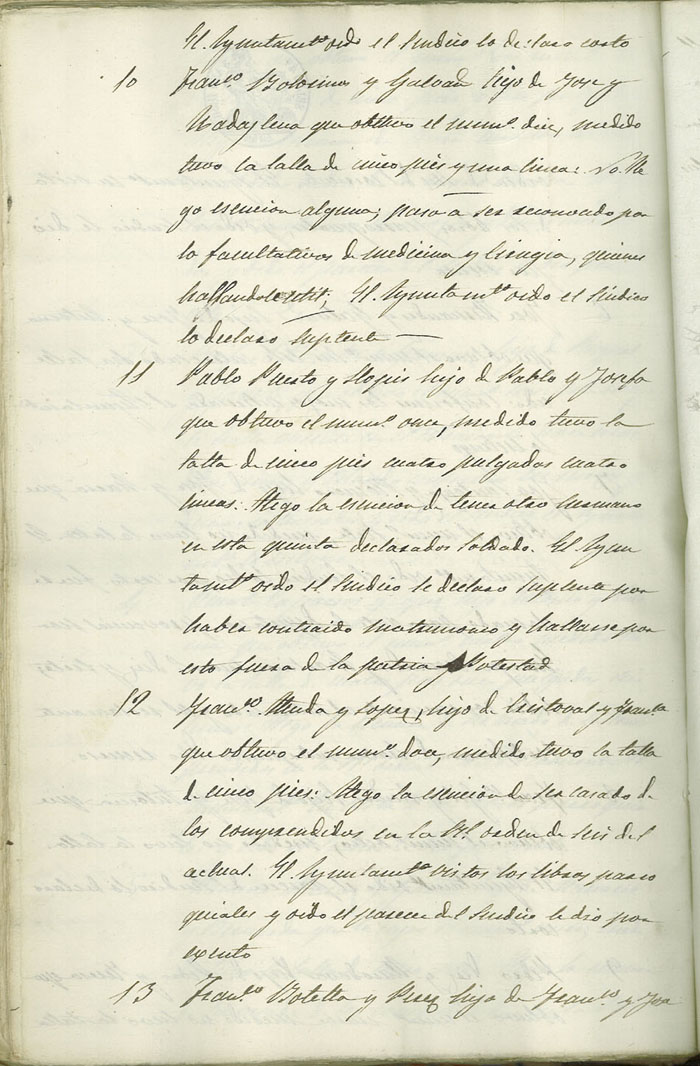 El Ayuntamto oido el Sindico lo declaro corto
10 Franco y Galvañ hijo de Jose y
Madaglena que obtuvo el numo diez, medido
tuvo la talla de cinco pies y una linea: No ale
go esencion alguna; paso a ser reconocido por
lo facultativos de medicina y cirugia, quienes
hallandole util; El Ayuntamto oido el Sindico
lo declaro suplente
11 Pablo Puesto y Llopis hijo de Pablo y Josefa
que obtuvo el numo once, medido tuvo la
talla de cinco pies cuatro pulgadas cuatro
lineas: Alego la esencion de tener otro hermano
en esta quinta declarados soldado. El Ayun
tamto oido el Sindico le declaro suplente por
haber contraido matrimonio y hallarse por
esto fuera de la patria Potestad
12 Franco y Lopez, hijo de Cristoval y Franca
que obtuvo el numo doce, medido tuvo la talla
de cinco pies: Alego la esencion de ser casado de
los comprendidos en la Rl orden de seis del
actual. El Ayuntamto vistos los libros parro
quiales y oido el parecer del Sindico le dio por
exento
13 Franco Botella y Perez hijo de Franco y